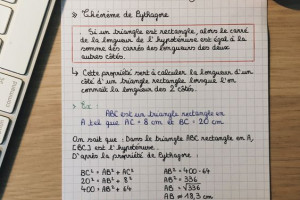 » Théorème de Pythagore
Si un triangle est rectangle, alors le carré
de la longueur de l'hypoténuse est égal à la
somme des carrés des longueurs des deux
autres côtés.
↳ Cette propriété sert à calculer la longueur d'un
côté d'un triangle rectangle lorsque l'on
connaît la longueur des 2 côtés.
» Ex :
ABC est un triangle rectangle en
A tel que AC = 8 cm et BC = 20 cm
On sait que : Dans le triangle ABC rectangle en A,
[BC] est l'hypoténuse.
D'après la propriété de Pythagore :
BC² = AB² + AC²
20² = AB² + 8²
400 = AB² + 64
AB² = 400 - 64
AB² = 336
AB = √336
AB ≈ 18,3 cm